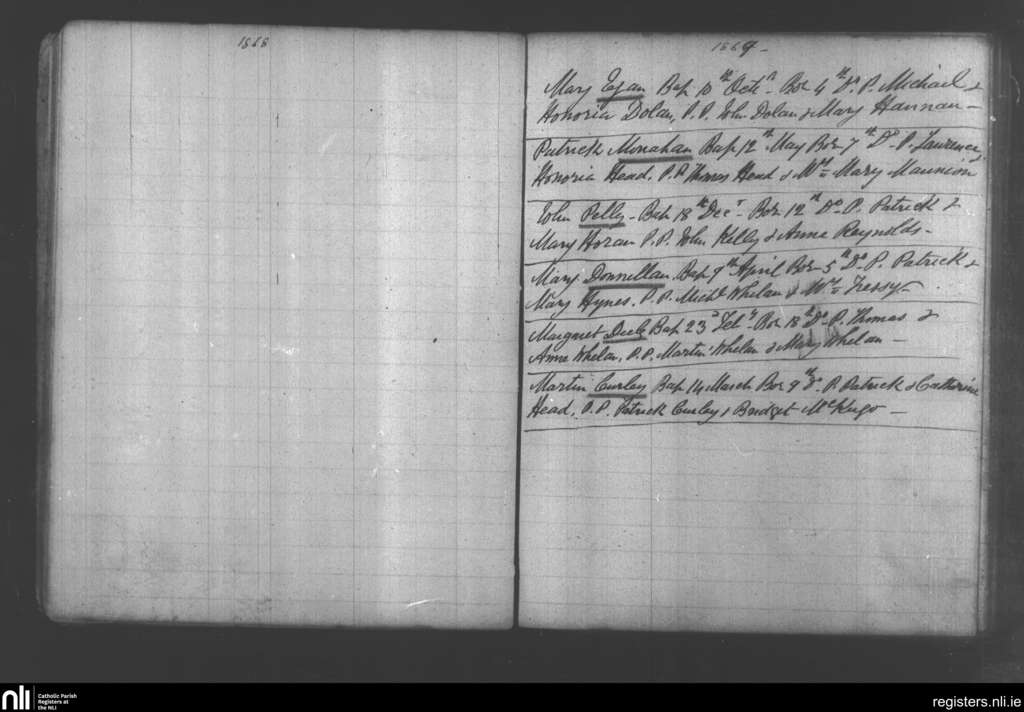 1868
1869-
Mary Egan Bap 10th Octr - Bor 4th Do. P. Michael &
Honoria Dolan, P.P. John Dolan & Mary Hannan -
Patrick Monahan Bap 12th May Bor 7th Do - P. Lawrence,
Honoria Head. P.P. Thomas Head & Mary Mannion
John Pelly - Bap 18th Decr - Bor 12th Do - P. Patrick &
Mary Horan P.P. John Kelly & Anne Reynolds -
Mary Donnellan Bap 9th April Bor 5th Do P. Patrick &
Mary Hynes. P.P. Michl Whelan &
Margaret Bap 23d Feby - Bor 18th Do - P. Thomas &
Anne Whelan, P.P. Martin Whelan & Mary Whelan -
Martin Curley Bap 14 March Bor 9th Do. P. Patrick & Catherine
Head. P.P. Patrick Curley & Bridget McHugo -
nli
Catholic Parish
Registers at
the NLI
registers.nli.ie